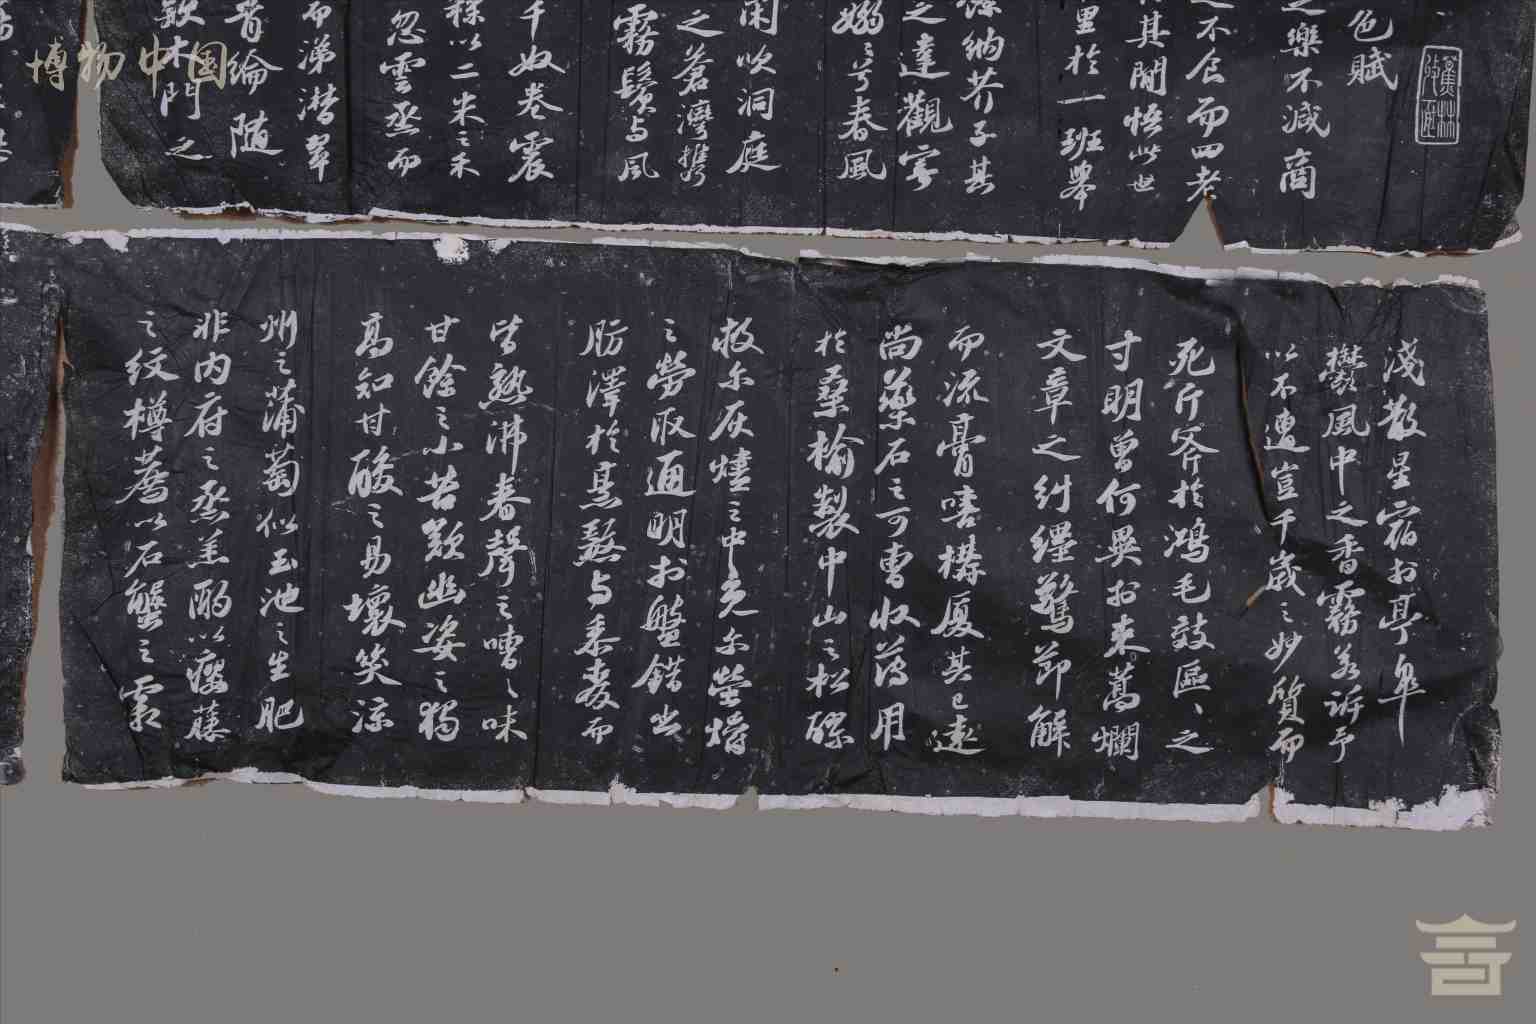 博物中国
色賦
之樂不減商
之不食而四老
其間悟此世
里於一班舉
餘納芥子其
之達觀寄
嫋〻兮春風
閑吹洞庭
之蒼灣攜
霧鬢与風
千奴卷震
糅以二米之禾
忽雲烝而
而涕潸翠
青綸隨
款木門之
淺散星宿於亭皋
鬱風中之香霧若訴予
以不遭豈千歲之妙質而
死斤斧於鴻毛效區〻之
寸明曾何異於束蒿爛
文章之糾纆驚節解
而流膏嘻構廈其已遠
尚藥石之可曹收薄用
於桑榆製中山之松醪
救尔灰燼之中免尔螢爝
之勞取通明於盤錯出
肪澤於烹熬与黍麥而
皆熟沸春聲之嘈〻味
甘餘之小苦歎幽姿之獨
高知甘酸之易壞笑涼
州之蒲萄似玉池之生肥
非內府之烝羔酌以癭藤
之紋樽薦以石蟹之霜